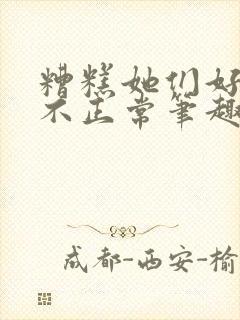 糟糕她们好
不正常笔趣
成都-西安-榆